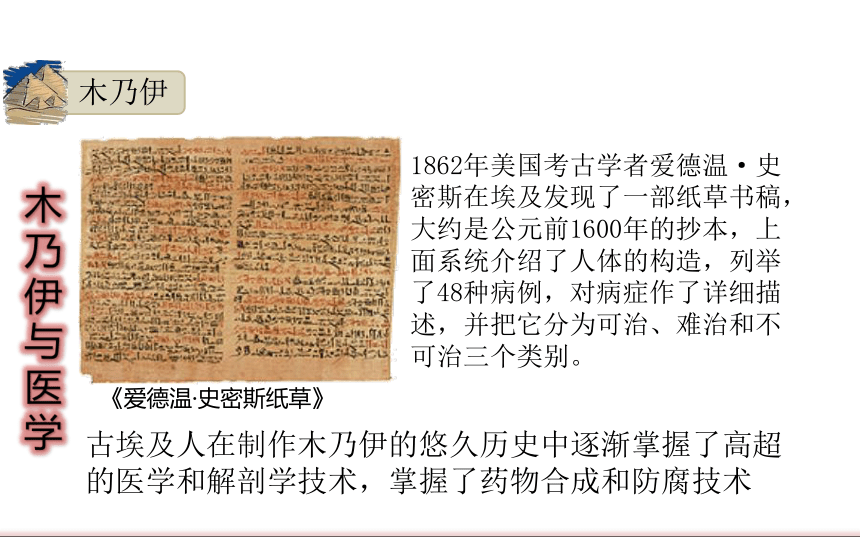 木乃伊
木乃伊与医学
1862年美国考古学者爱德温·史
密斯在埃及发现了一部纸草书稿，
大约是公元前1600年的抄本，上
面系统介绍了人体的构造，列举
了48种病例，对病症作了详细描
述，并把它分为可治、难治和不
可治三个类别。
《爱德温·史密斯纸草》
古埃及人在制作木乃伊的悠久历史中逐渐掌握了高超
的医学和解剖学技术，掌握了药物合成和防腐技术